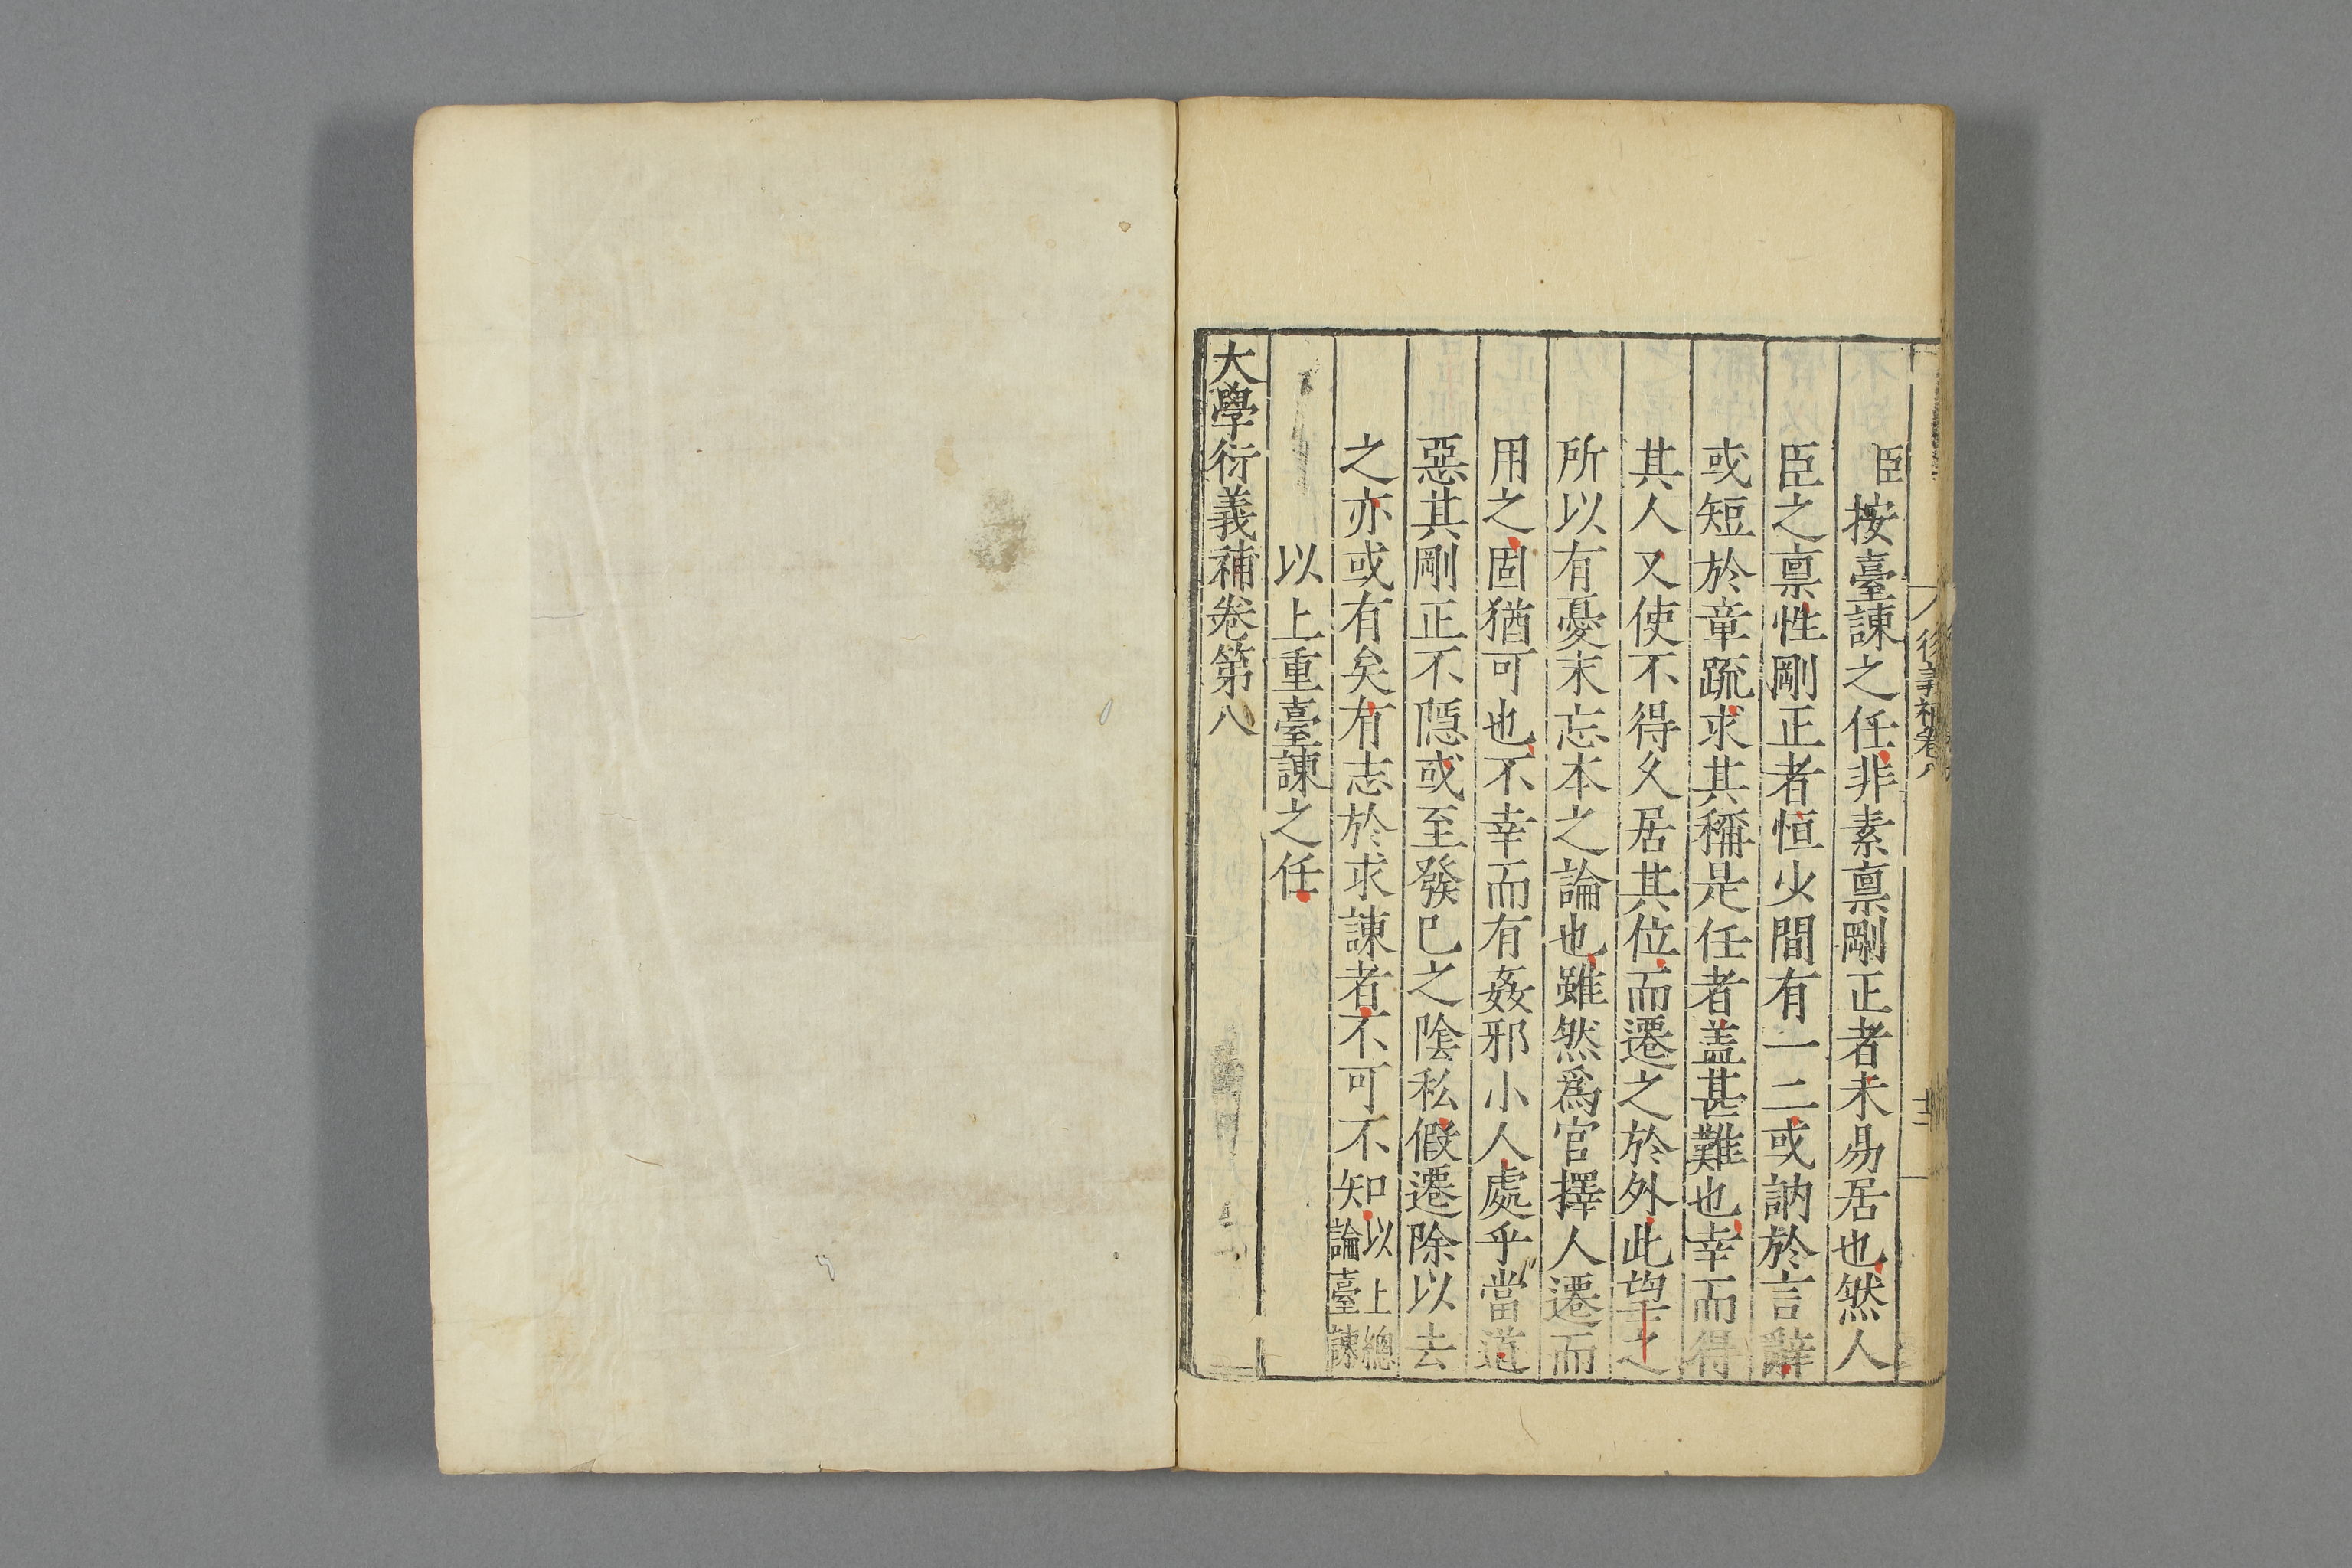 臣按臺諫之任非素禀剛正者未易居也然人
臣之禀性剛正者恒少間有一二或訥於言辭
或短於章疏求其稱是任者盖甚難也幸而得
其人又使不得久居其位而遷之於外此望之
所以有憂末忘本之論也雖然爲官擇人遷而
用之固猶可也不幸而有姦邪小人處乎當道
惡其剛正不隱或至發已之陰私假遷除以去
之亦或有矣有志於求諫者不可不知以上總
論臺諫
以上重臺諫之任
大學衍義補卷第八